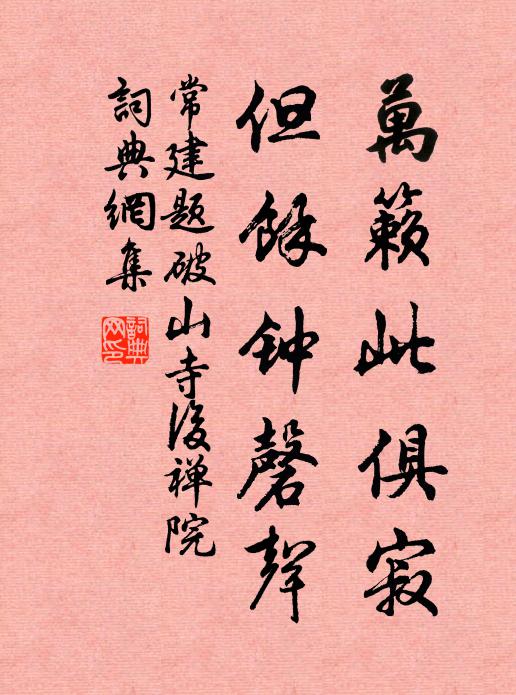 萬籟此俱寂
但餘钟磬聲
常建題破山寺後禅院
詞典網集
詞典网印